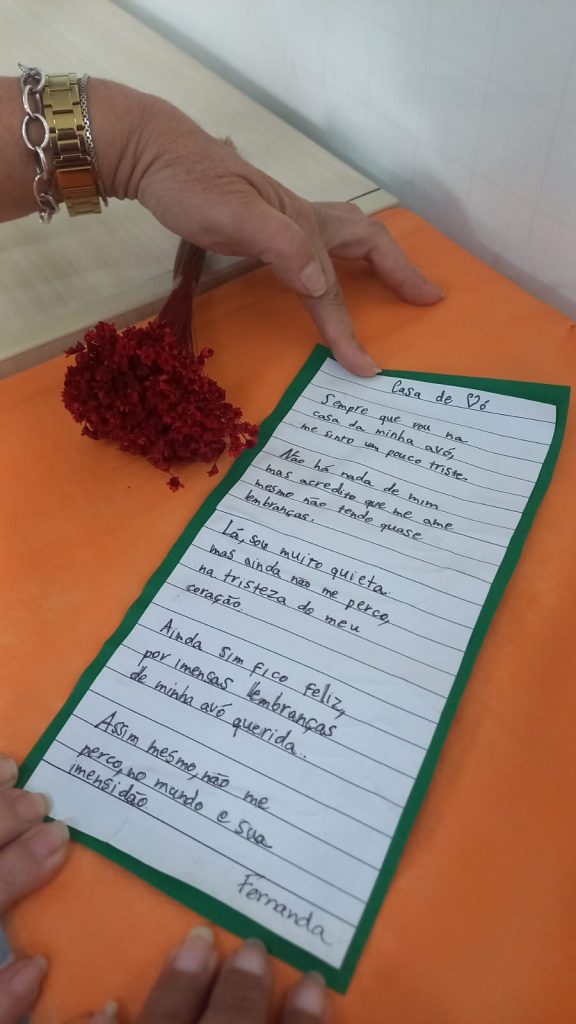 Casa de ♡ó
Sempre que vou na
casa da minha avó,
me sinto um pouco triste.
Não há nada de mim
mas acredito que me ame
mesmo não tendo quase
lembranças.
Lá, sou muito quieta
mas ainda não me perco,
na tristeza do meu
coração.
Ainda sim fico feliz,
por imensas lembranças
de minha avó querida..
Assim mesmo, não me
perco, no mundo e sua
imensidão
Fernanda